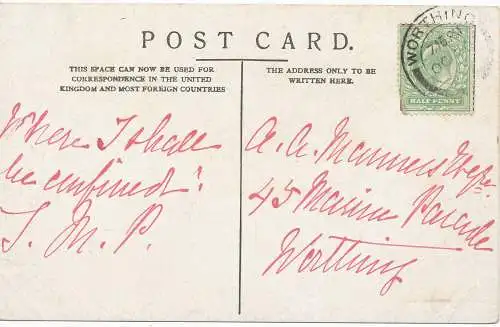 POST CARD.
THIS SPACE CAN NOW BE USED FOR
CORRESPONDENCE IN THE UNITED
KINGDOM AND MOST FOREIGN COUNTRIES
THE ADDRESS ONLY TO BE
WRITTEN HERE.
WORTHING
HALF PENNY
Where I shall
be confined!
S. M. P.
A. A. Manners
45 Marine Parade
Worthing